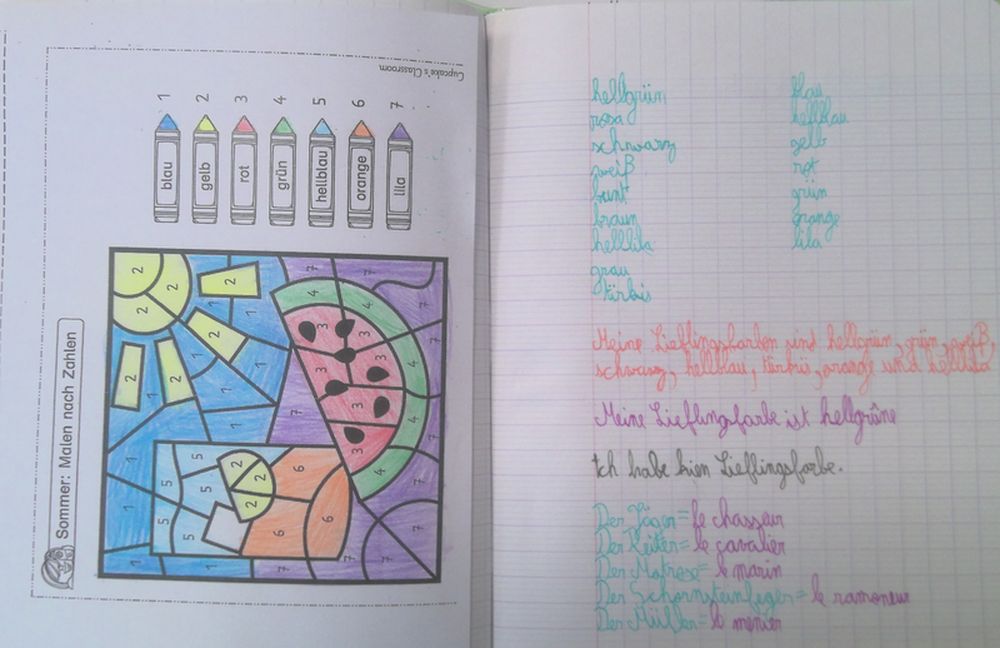 Sommer: Malen nach Zahlen
blau 1
gelb 2
rot 3
grün 4
hellblau 5
orange 6
lila 7
Cupcake's Classroom
2 2 2 2 2 2 2
1 1 1 1 1 1 1 1
5 5 5 5
2 2 2
6 6 6
3 3 3 3 3
4 4 4 4
7 7 7 7 7 7 7 7
hellgrün
rosa
schwarz
weiß
bunt
braun
helllila
grau
türbis
blau
hellblau
gelb
rot
grün
orange
lila
Meine Lieflingsfarben sind hellgrün, grün, weiß,
schwarz, hellblau, türbis, orange und helllila
Meine Lieflingfarbe ist hellgrüne
Ich habe kien Lieflingsfarbe.
Der Jäger = le chasseur
Der Reiter = le cavalier
Der Matrose = le marin
Der Schornsteinfeger = le ramoneur
Der Müller = le menier